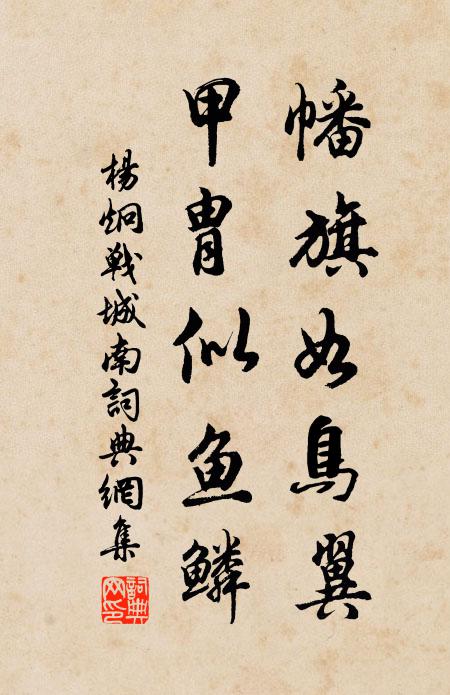 幡旗如鳥翼
甲胄似鱼鳞
楊炯戰城南詞典網集
詞典
网印